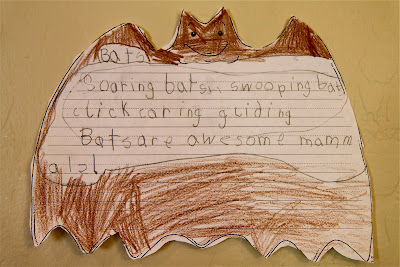 Bats
Soaring bats, swooping bat
click caring gliding
Bats are awesome mamm
als!